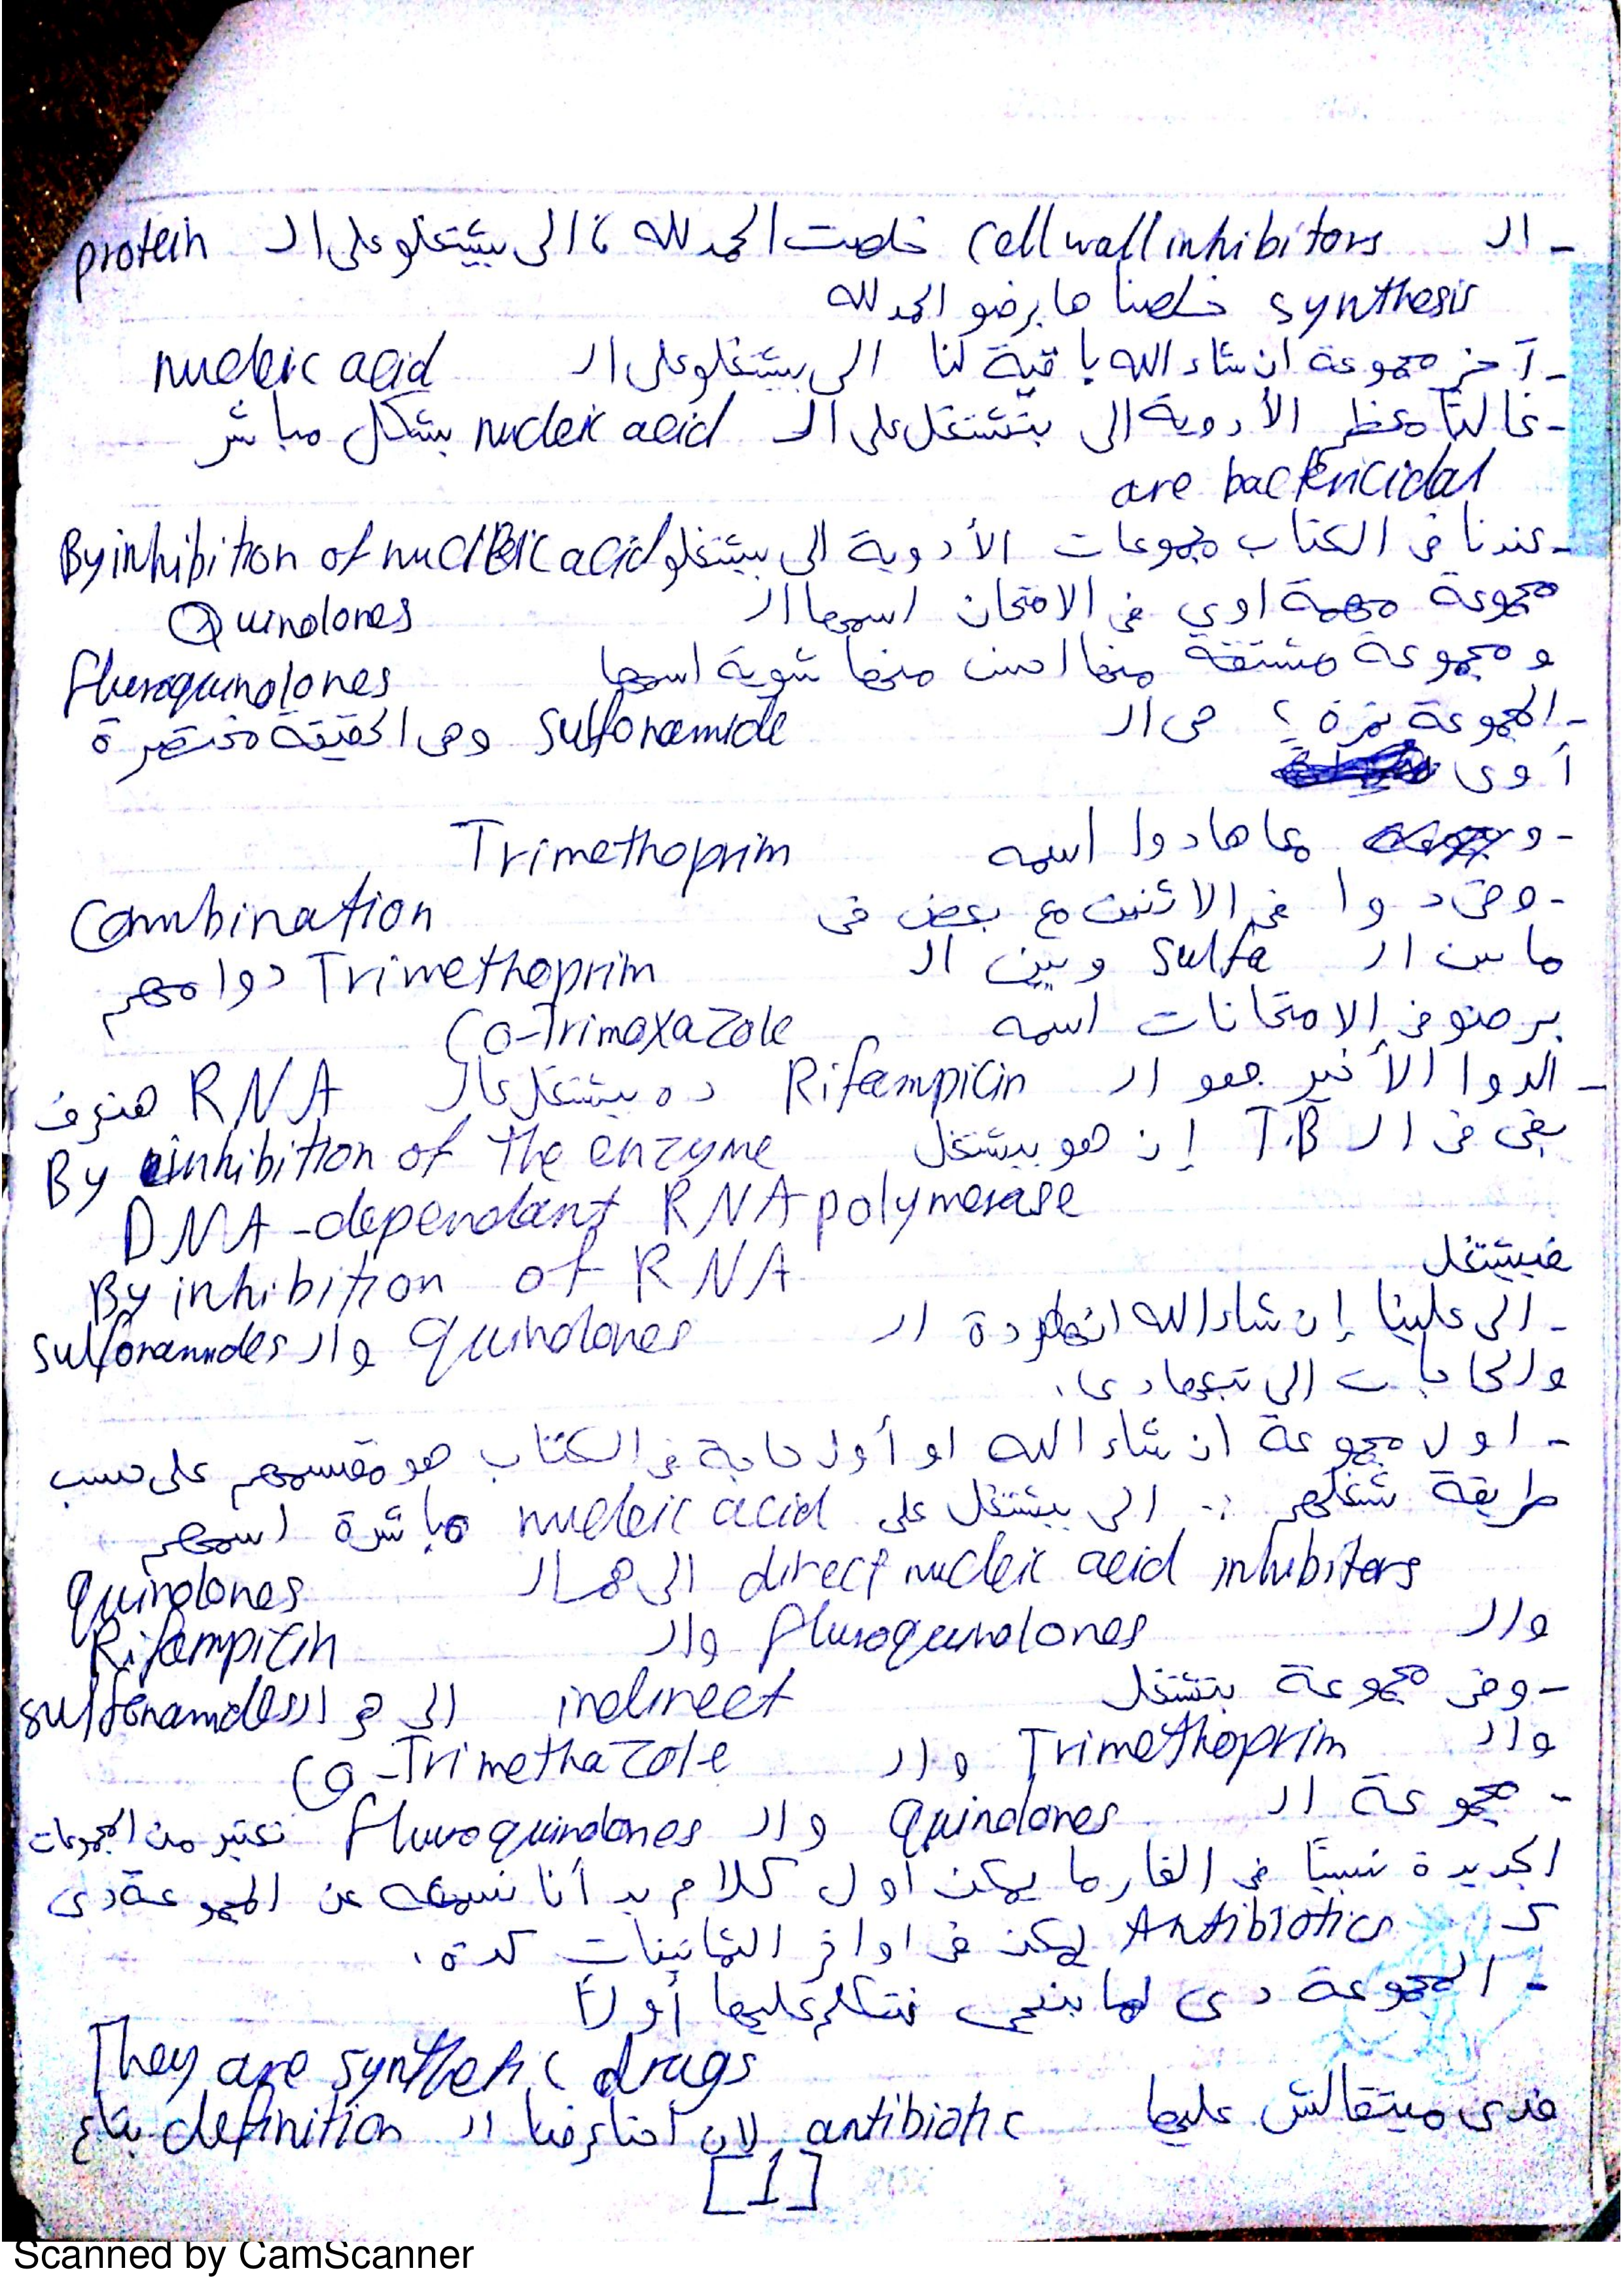 - الـ cell wall inhibitors خلصت الحمد لله، الى بيشتغلو على الـ protein
synthesis خلصنا ها برضو الحمد لله
- آخر مجموعة ان شاء الله باقية لنا الى بيشتغلو على الـ nucleic acid
- غالبًا معظم الأدوية الى بتشتغل على الـ nucleic acid بشكل مباشر
are bactericidal
- عندنا فى الكتاب مجموعات الأدوية الى بيشتغلو By inhibition of nucleic acid
مجموعة مهمة اوي فى الامتحان اسمها الـ Quinolones
و مجموعة مشتقة منها احسن منها شوية اسمها fluroquinolones
- المجموعة نمرة ٢ هى الـ Sulfonamide وهى الحقيقة مختصرة
أوى
- و معاها دوا اسمه Trimethoprim
- وفى دوا فى الاتنين مع بعض فى Combination
ما بين الـ Sulfa وبين الـ Trimethoprim دوا مهم
برضو فى الامتحانات اسمه Co-Trimoxazole
- الدوا الأخير هو الـ Rifampicin ده بيشتغل عالـ RNA هنعرف
بقى فى الـ T.B إن هو بيشتغل By inhibition of the enzyme
DNA-dependant RNA polymerase
فبيشتغل By inhibition of RNA
- الى علينا إن شاء الله انهاردة الـ quinolones والـ sulfonamides
والحاجات الى تبعها دى.
- اول مجموعة ان شاء الله او أول حاجة فى الكتاب هو مقسمهم على حسب
طريقة شغلهم :- الى بيشتغل على nucleic acid مباشرة اسمهم
direct nucleic acid inhibitors الى هما الـ quinolones
والـ fluroquinolones والـ Rifampicin
- وفى مجموعة بتشتغل indirect الى هى الـ sulfonamides
والـ Trimethoprim والـ Co-Trimethazole
- مجموعة الـ Quinolones والـ fluroquinolones تعتبر من المجموعات
الجديدة نسبيًا فى الفارما يمكن أول كلام بدأنا نسمعه عن المجموعة دى
كـ Antibiotics يمكن فى اواخر الثمانينات كدة.
- المجموعة دى لما بنيجى نتكلم عليها أولًا
They are synthetic drugs
فدى ميتقالش عليها antibiotic لان احنا عرفنا الـ definition بتاع
[1]
Scanned by CamScanner